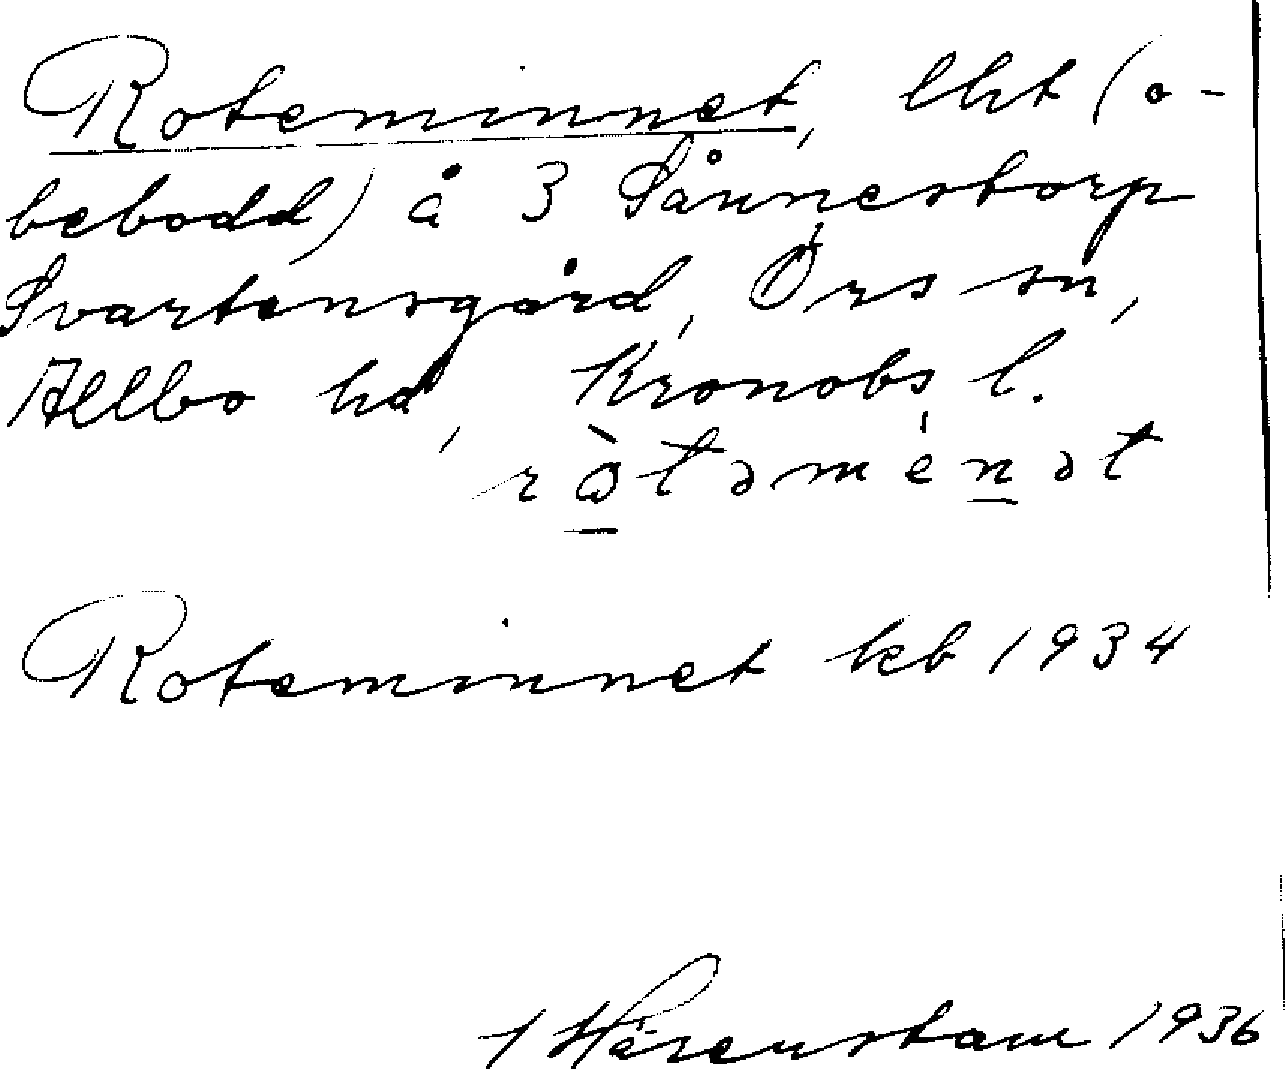 Roteminnet, lht (o-
bebodd) å 3 Sånnestorp
Svartensgård, Örs sn,
Allbo hd, Kronobs l.
ròtəménət
Roteminnet kb 1934
Härenstam 1936